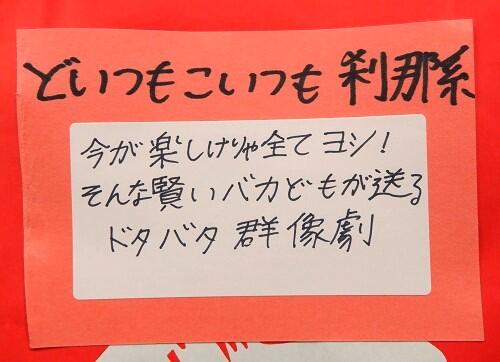 どいつもこいつも刹那系
今が楽しけりゃ全てヨシ!
そんな賢いバカどもが送る
ドタバタ群像劇